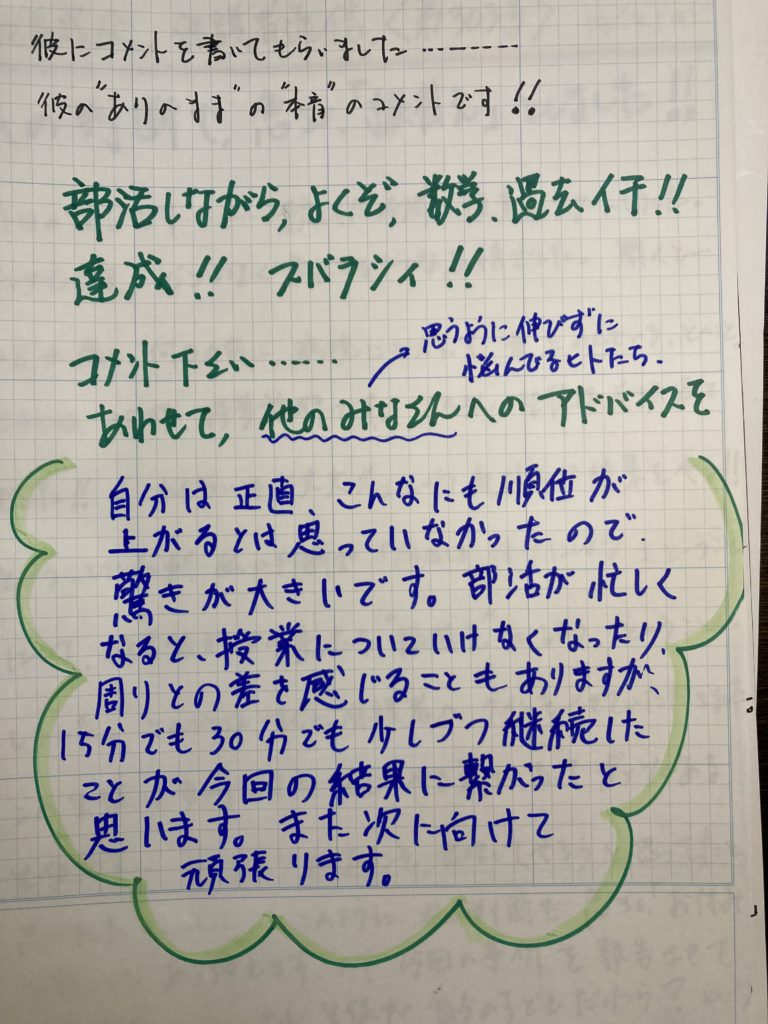 彼にコメントを書いてもらいました………
彼の"ありのまま"の"本音"のコメントです!!
部活しながら,よくぞ,数学.過去イチ!!
達成!! スバラシィ!!
コメント下さい……
思うように伸びずに
悩んでるヒトたち.
あわせて,他のみなさんへのアドバイスを
自分は正直、こんなにも順位が
上がるとは思っていなかったので、
驚きが大きいです。部活が忙しく
なると、授業についていけなくなったり、
周りとの差を感じることもありますが、
15分でも30分でも少しづつ継続した
ことが今回の結果に繋がったと
思います。また次に向けて
頑張ります。